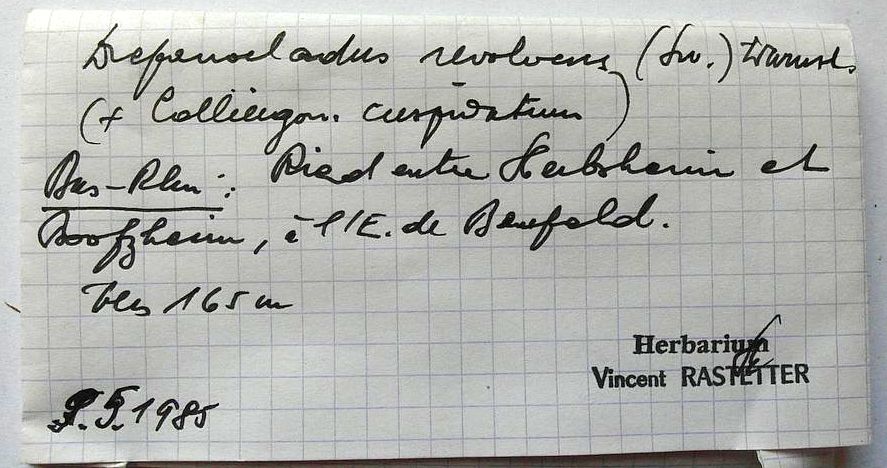 Drepanocladus revolvens (Sw.) Warnst.
(+ Calliergon. cuspidatum)
Bas-Rhin: Ried entre Herbsheim et
Boofzheim, à l'E. de Benfeld.
165 m
Herbarium
Vincent RASTETTER
5.1985